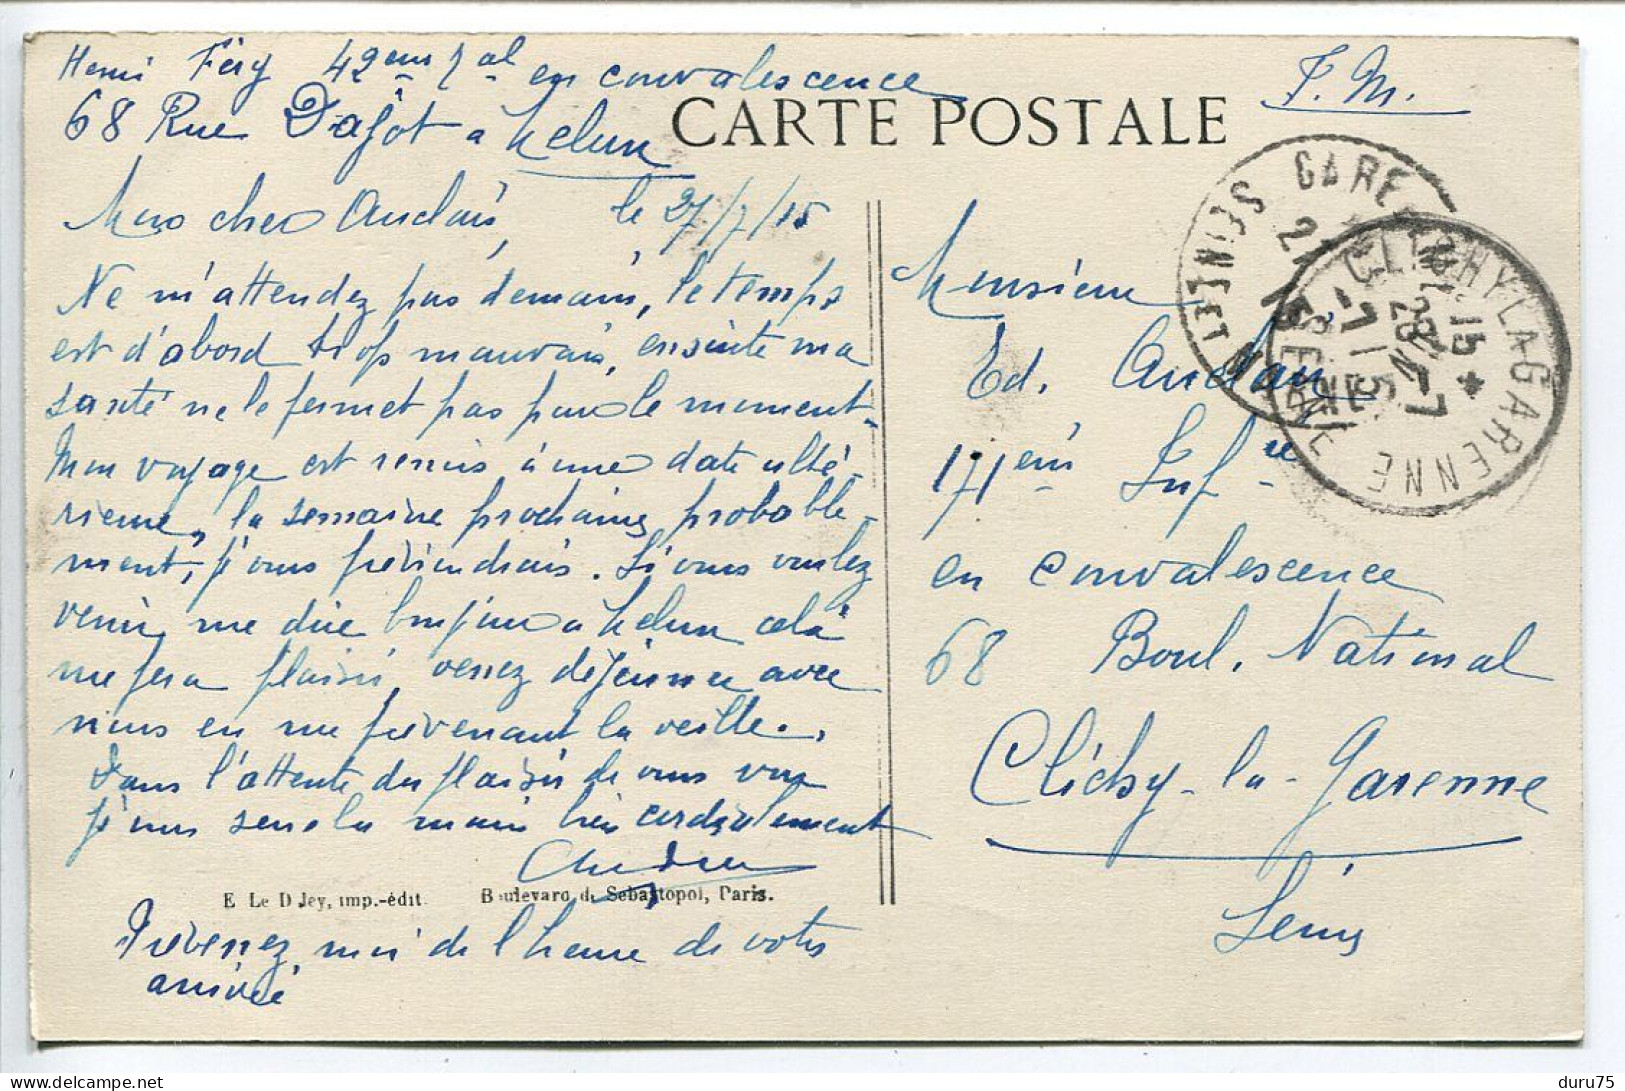 Henri Féry 42eme Ial en convalescence
68 Rue Dajot a Melun
F. M.
CARTE POSTALE
le 27/7/15
Mon cher Auclair,
Ne m'attendez pas demain, le temps
est d'abord trop mauvais, ensuite ma
santé ne le permet pas pour le moment.
Mon voyage est remis à une date ulté-
rieure, la semaine prochaine probable-
ment, je vous previendrais. Si vous voulez
venir me dire bonjour a Melun celà
me fera plaisir, venez déjeuner avec
nous en me prevenant la veille.
Dans l'attente du plaisir de vous voir
je vous serre la main bien cordialement
E Le D ley, imp.-édit. Boulevard de Sébastopol, Paris.
Prévenez moi de l'heure de votre
arrivée
Monsieur
Ed. Auclair
171eme Infrie
en convalescence
68 Boul. National
Clichy-la-Garenne
Seine
GARE
27
CLICHY-LA-GARENNE
28-7
15
SEINE